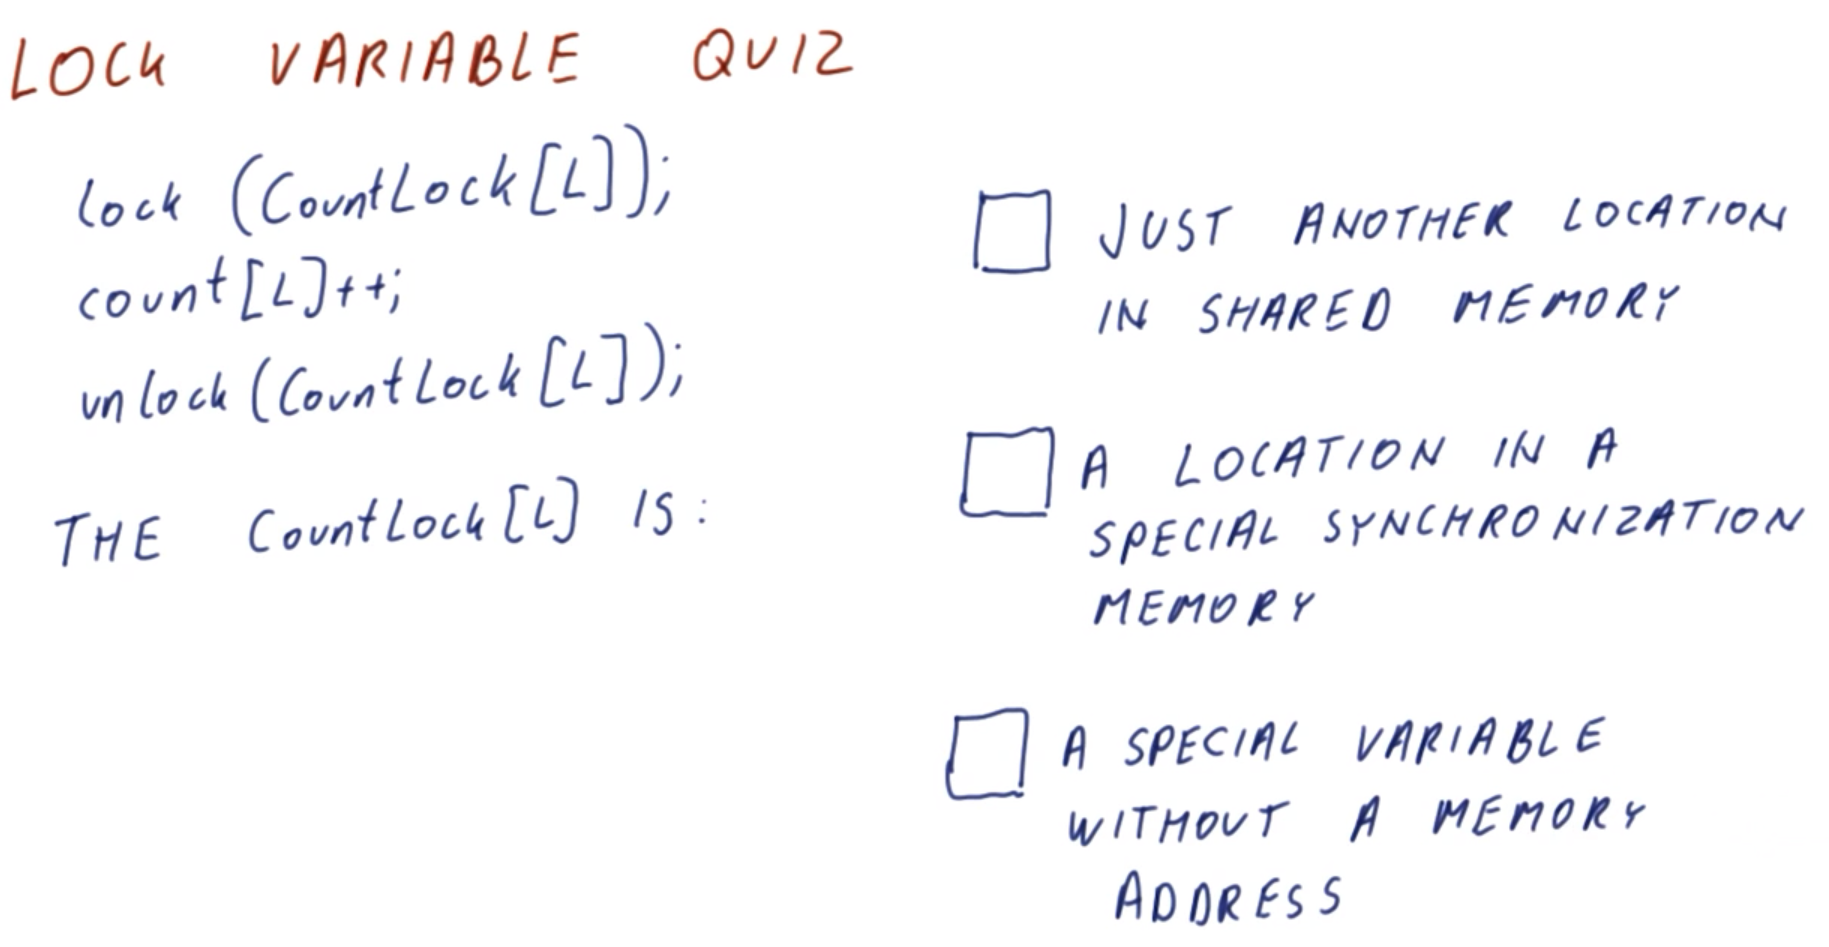 LOCK VARIABLE QUIZ
lock (CountLock[L]);
count[L]++;
unlock(CountLock[L]);
THE CountLock[L] IS:
JUST ANOTHER LOCATION
IN SHARED MEMORY
A LOCATION IN A
SPECIAL SYNCHRONIZATION
MEMORY
A SPECIAL VARIABLE
WITHOUT A MEMORY
ADDRESS